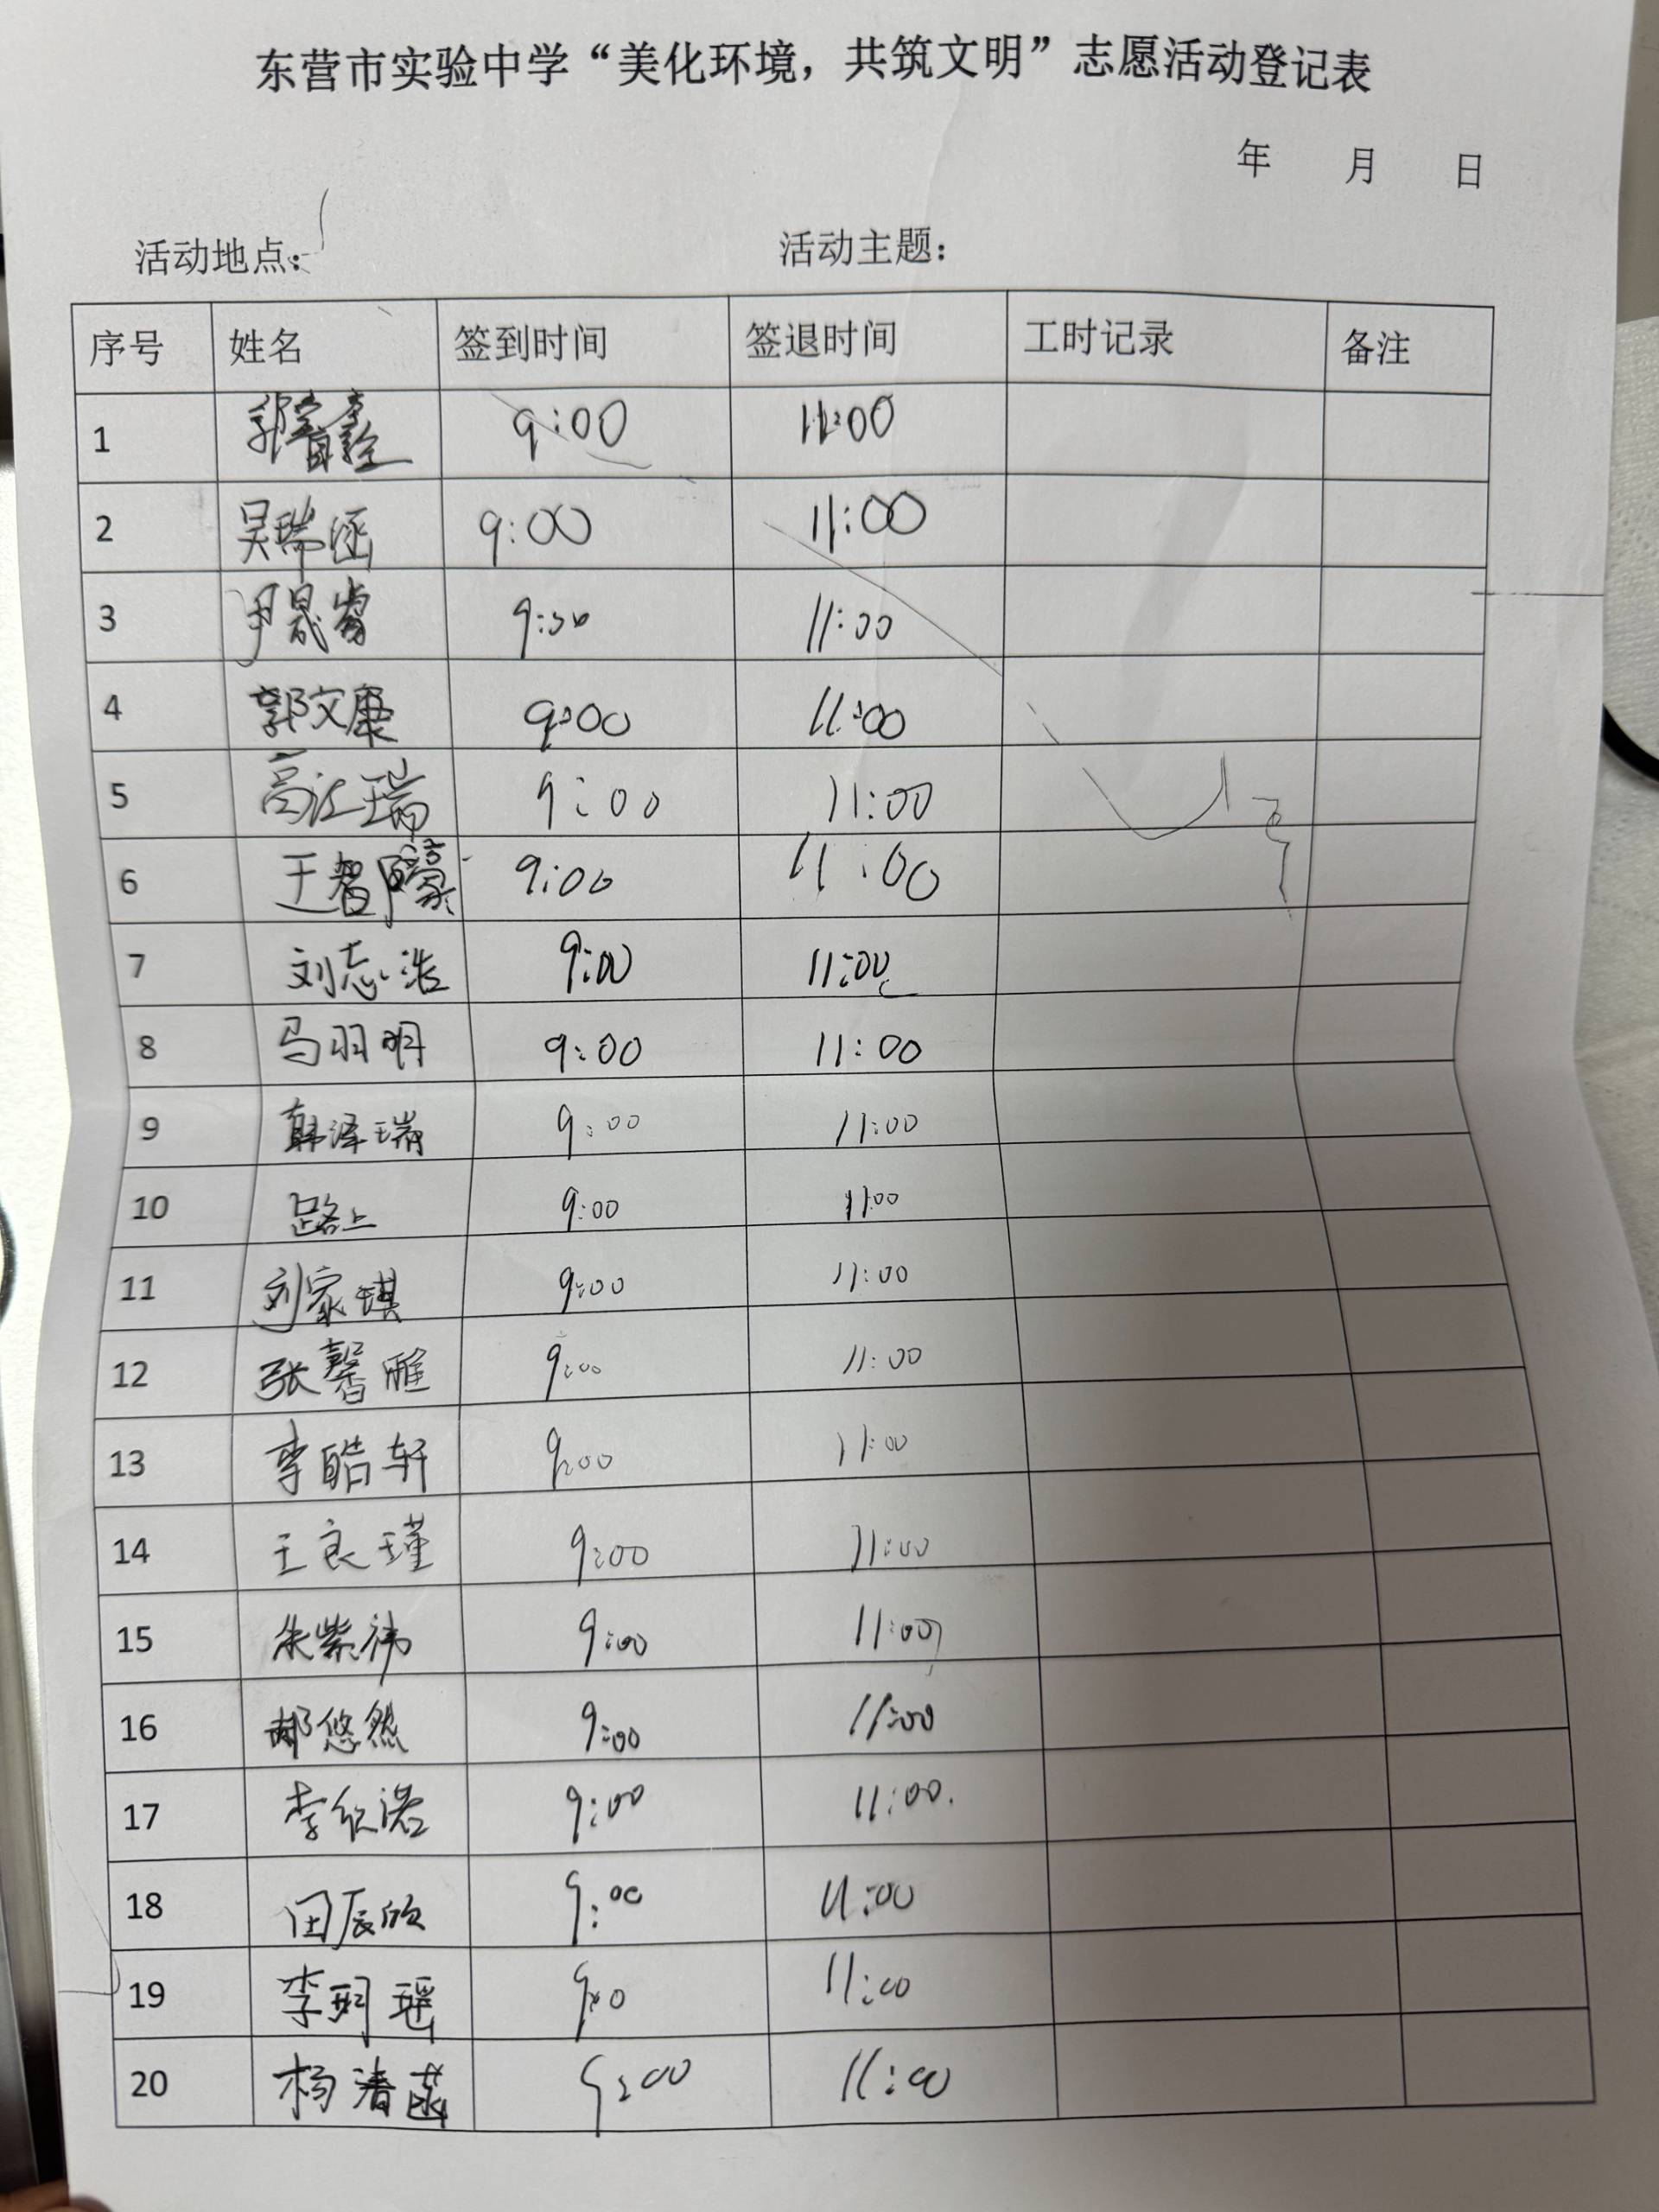 东营市实验中学“美化环境，共筑文明”志愿活动登记表
年 月 日
活动地点： 活动主题：
序号 姓名 签到时间 签退时间 工时记录 备注
1 9:00 11:00
2 吴瑞涵 9:00 11:00
3 尹晟睿 11:00
4 郭文康 9:00 11:00
5 高江瑞 9:00 11:00
6 王智 9:00 11:00
7 刘志浩 9:00 11:00
8 马羽明 9:00 11:00
9 韩泽瑞 9:00 11:00
10 路上 9:00 11:00
11 刘家琪 9:00 11:00
12 张馨雅 9:00 11:00
13 李皓轩 9:00 11:00
14 王良瑾 9:00 11:00
15 朱紫祎 9:00 11:00
16 郝悠然 9:00 11:00
17 李欣诺 9:00 11:00.
18 田辰欣 9:00 11:00
19 李珂瑶 11:00
20 杨清菡 9:00 11:00